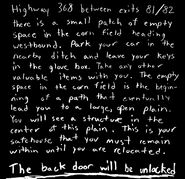 Highway 368 between exits 81/82
there is a small patch of empty
space in the corn field heading
westbound. Park your car in the
nearby ditch and leave your keys
in the glove box. Take any other
valuable items with you. The empty
space in the corn field is the begin-
ning of a path that eventually
lead you to a large, open plain.
You will see a structure in the
center of this plain. This is your
safehouse that you must remain
within until you are relocated.
The back door will be unlocked